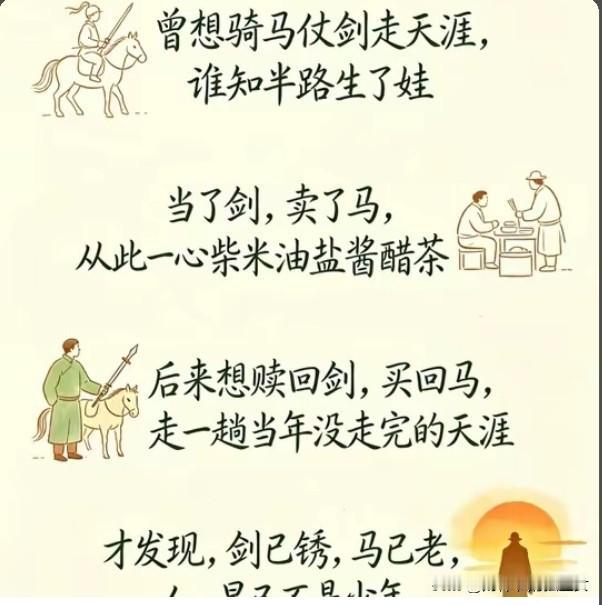 曾想骑马仗剑走天涯，
谁知半路生了娃
当了剑，卖了马，
从此一心柴米油盐酱醋茶
后来想赎回剑，买回马，
走一趟当年没走完的天涯
才发现，剑已锈，马已老，